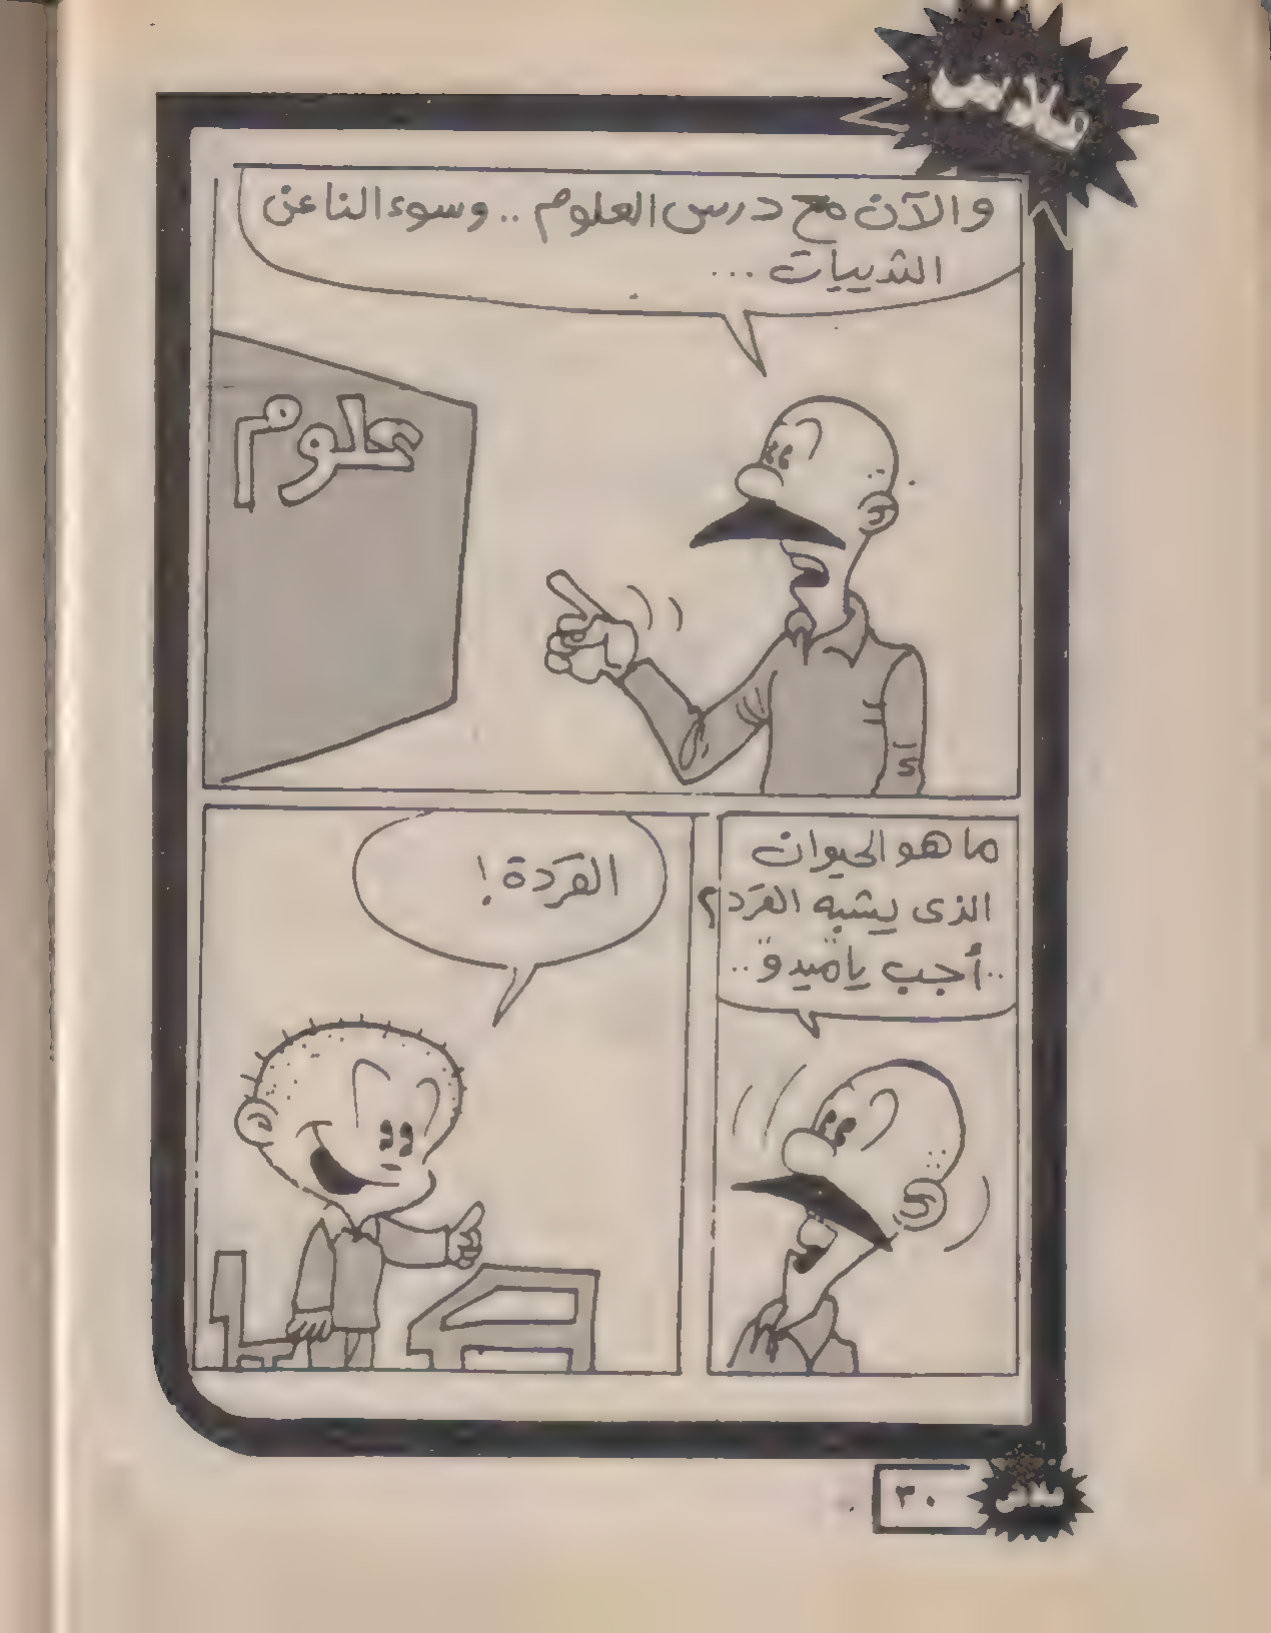 والآن مع درس العلوم .. وسوء النا عن
الثدييات ...
علوم
ما هو الحيوان
الذى يشبه القرد ؟
.. أجب يا ميدو ..
القردة !
٣٠